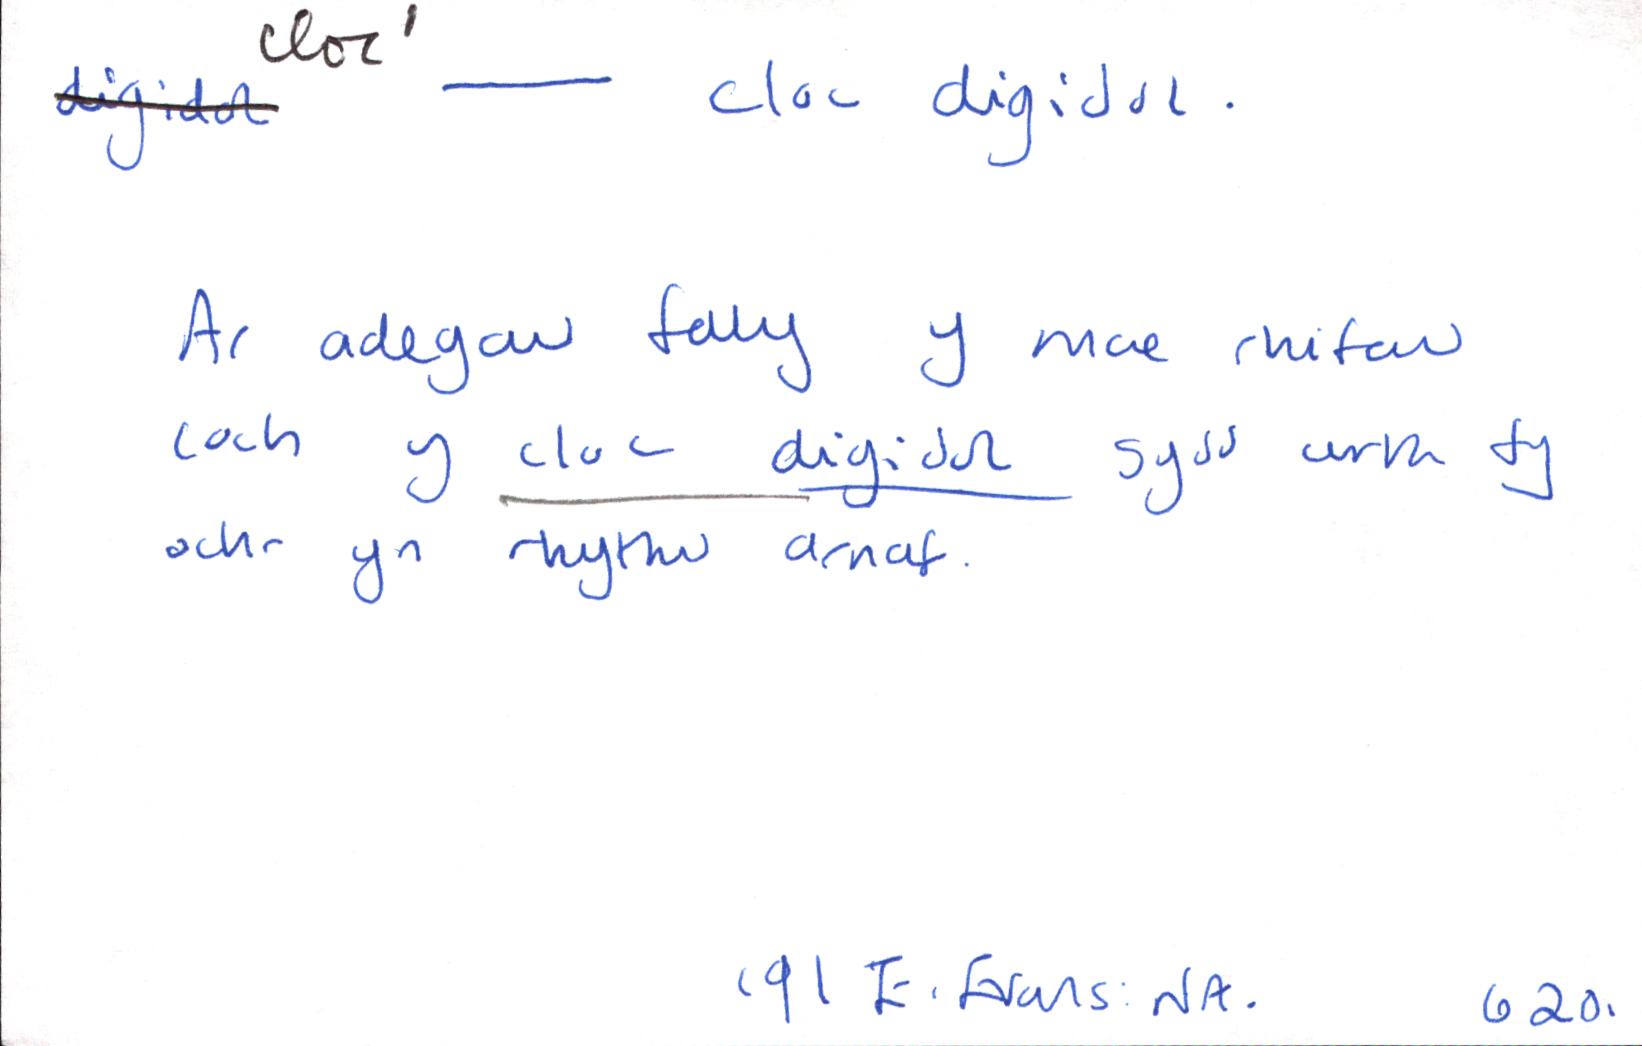 cloc'
digidol — cloc digidol.
Ar adegau felly y mae rhifau
coch y cloc digidol sydd wrth fy
ochr yn rhythu arnaf.
'91 E. Evans: NA. 620.